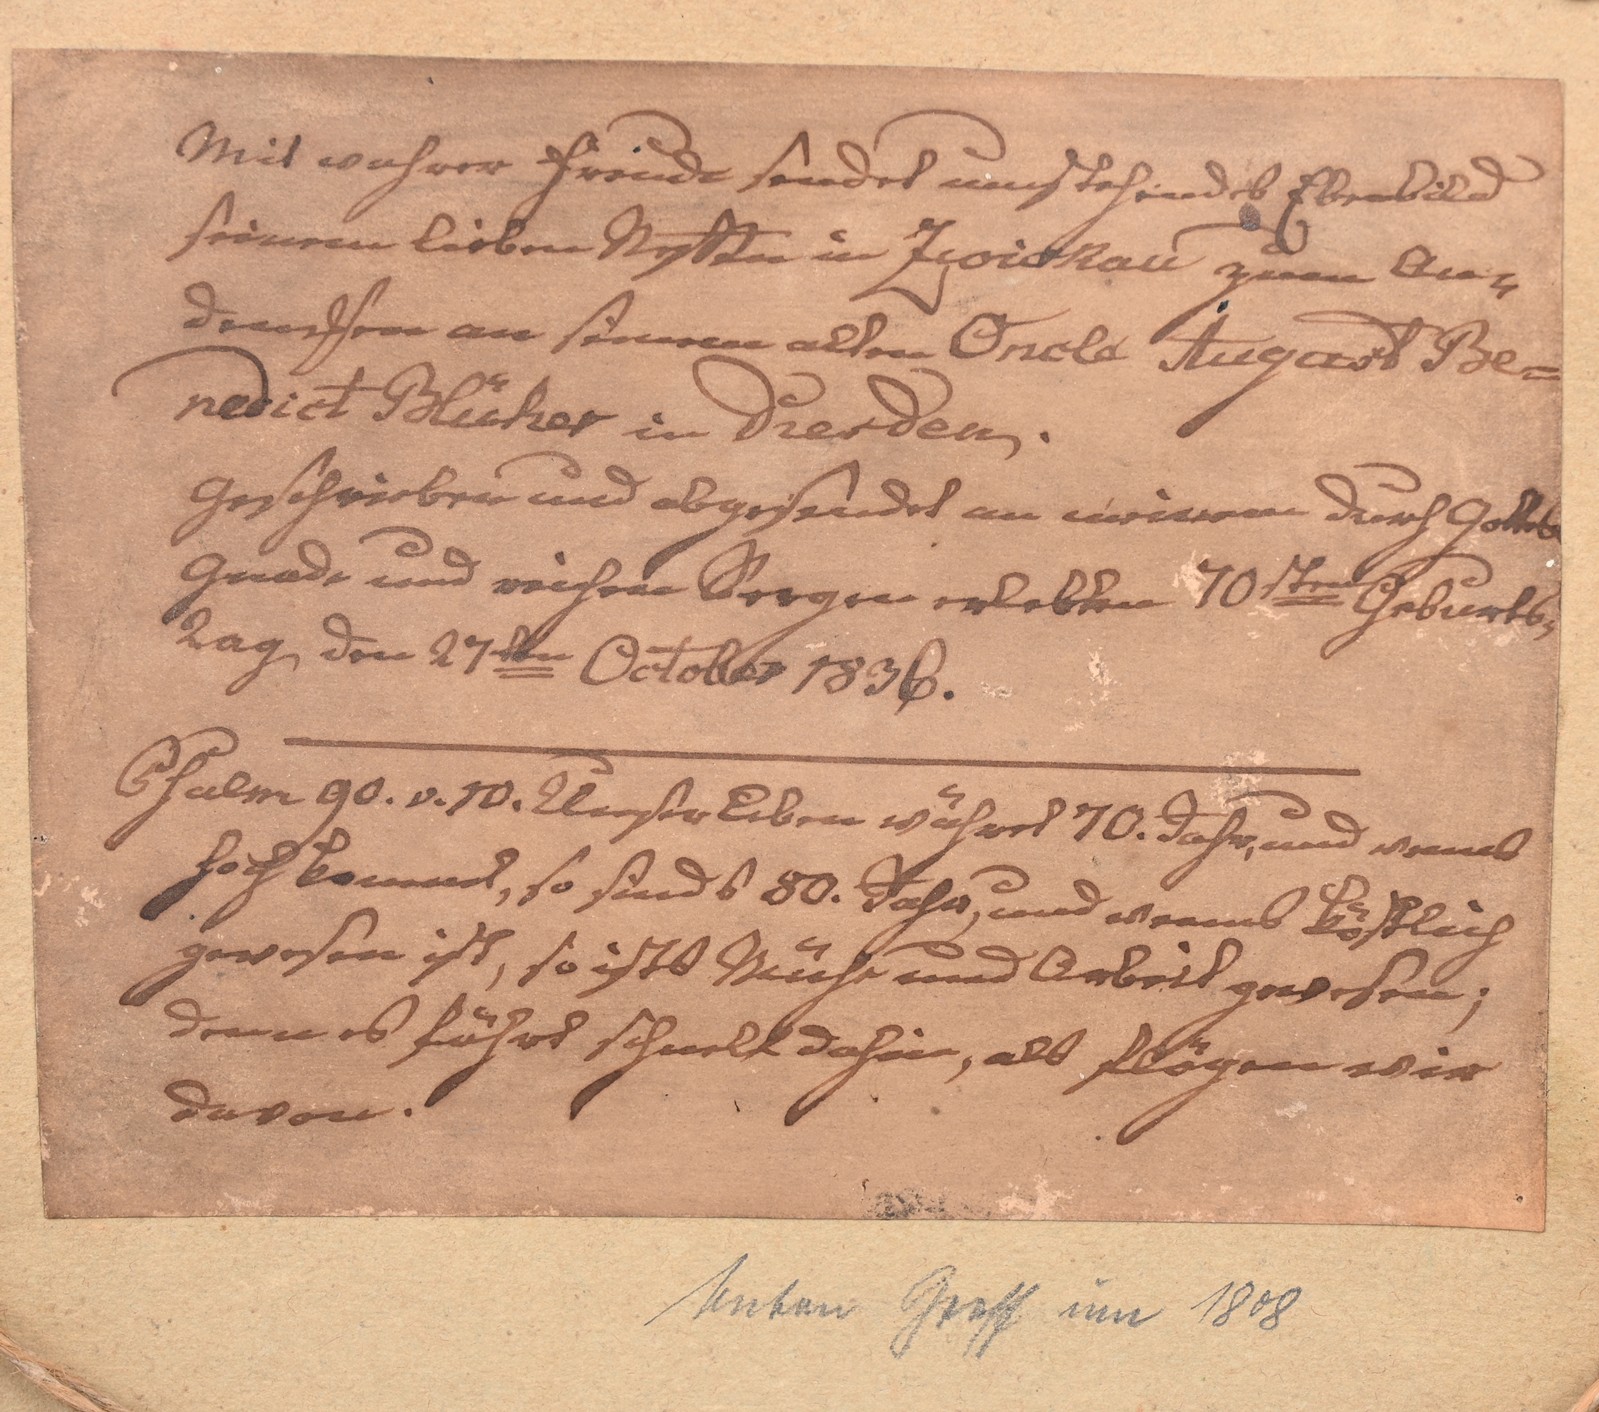 Mit wahrer Freude sendet umstehendes Ebenbild
seinem lieben Neffen in Zwickau zum An-
denken an seinen alten Oncle August Be=
nedict Blücher in Dresden.
Geschrieben und abgesendet an meinem durch Gottes
Gnade und reichen Seegen erlebten 70sten Geburts-
tag, den 27ten October 1836.
Psalm 90. v. 10. Unser Leben währet 70. Jahr, und wenns
hoch kommt, so sinds 80. Jahr, und wenns köstlich
gewesen ist, so ists Mühe und Arbeit gewesen;
denn es fährt schnell dahin, als flögen wir
davon.
Anton Graff um 1808